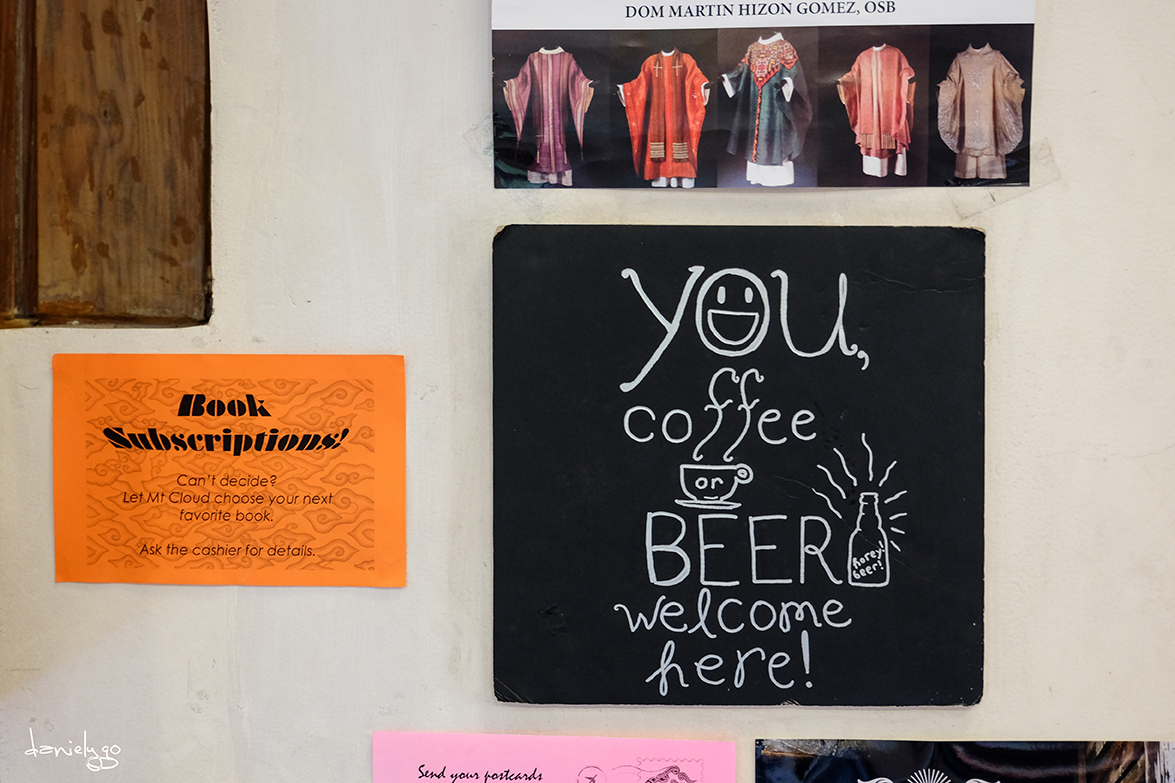 DOM MARTIN HIZON GOMEZ, OSB
YOU,
coffee
or
BEER
horey!
beer!
welcome
here!
Book
Subscriptions!
Can't decide?
Let Mt Cloud choose your next
favorite book.
Ask the cashier for details.
Send your postcards
danielygo